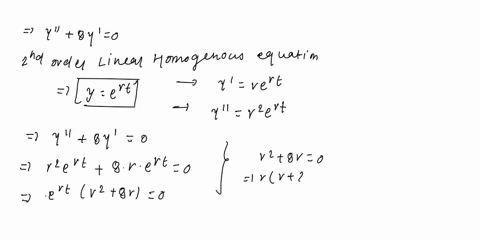 ⇒ y'' + 8y' = 0
2nd order Linear Homogenous equatim
⇒ y = e^{rt} → y' = re^{rt}
→ y'' = r²e^{rt}
⇒ y'' + 8y' = 0
⇒ r²e^{rt} + 8·r·e^{rt} = 0
⇒ e^{rt} (r² + 8r) = 0
r² + 8r = 0
⇒ r(r+